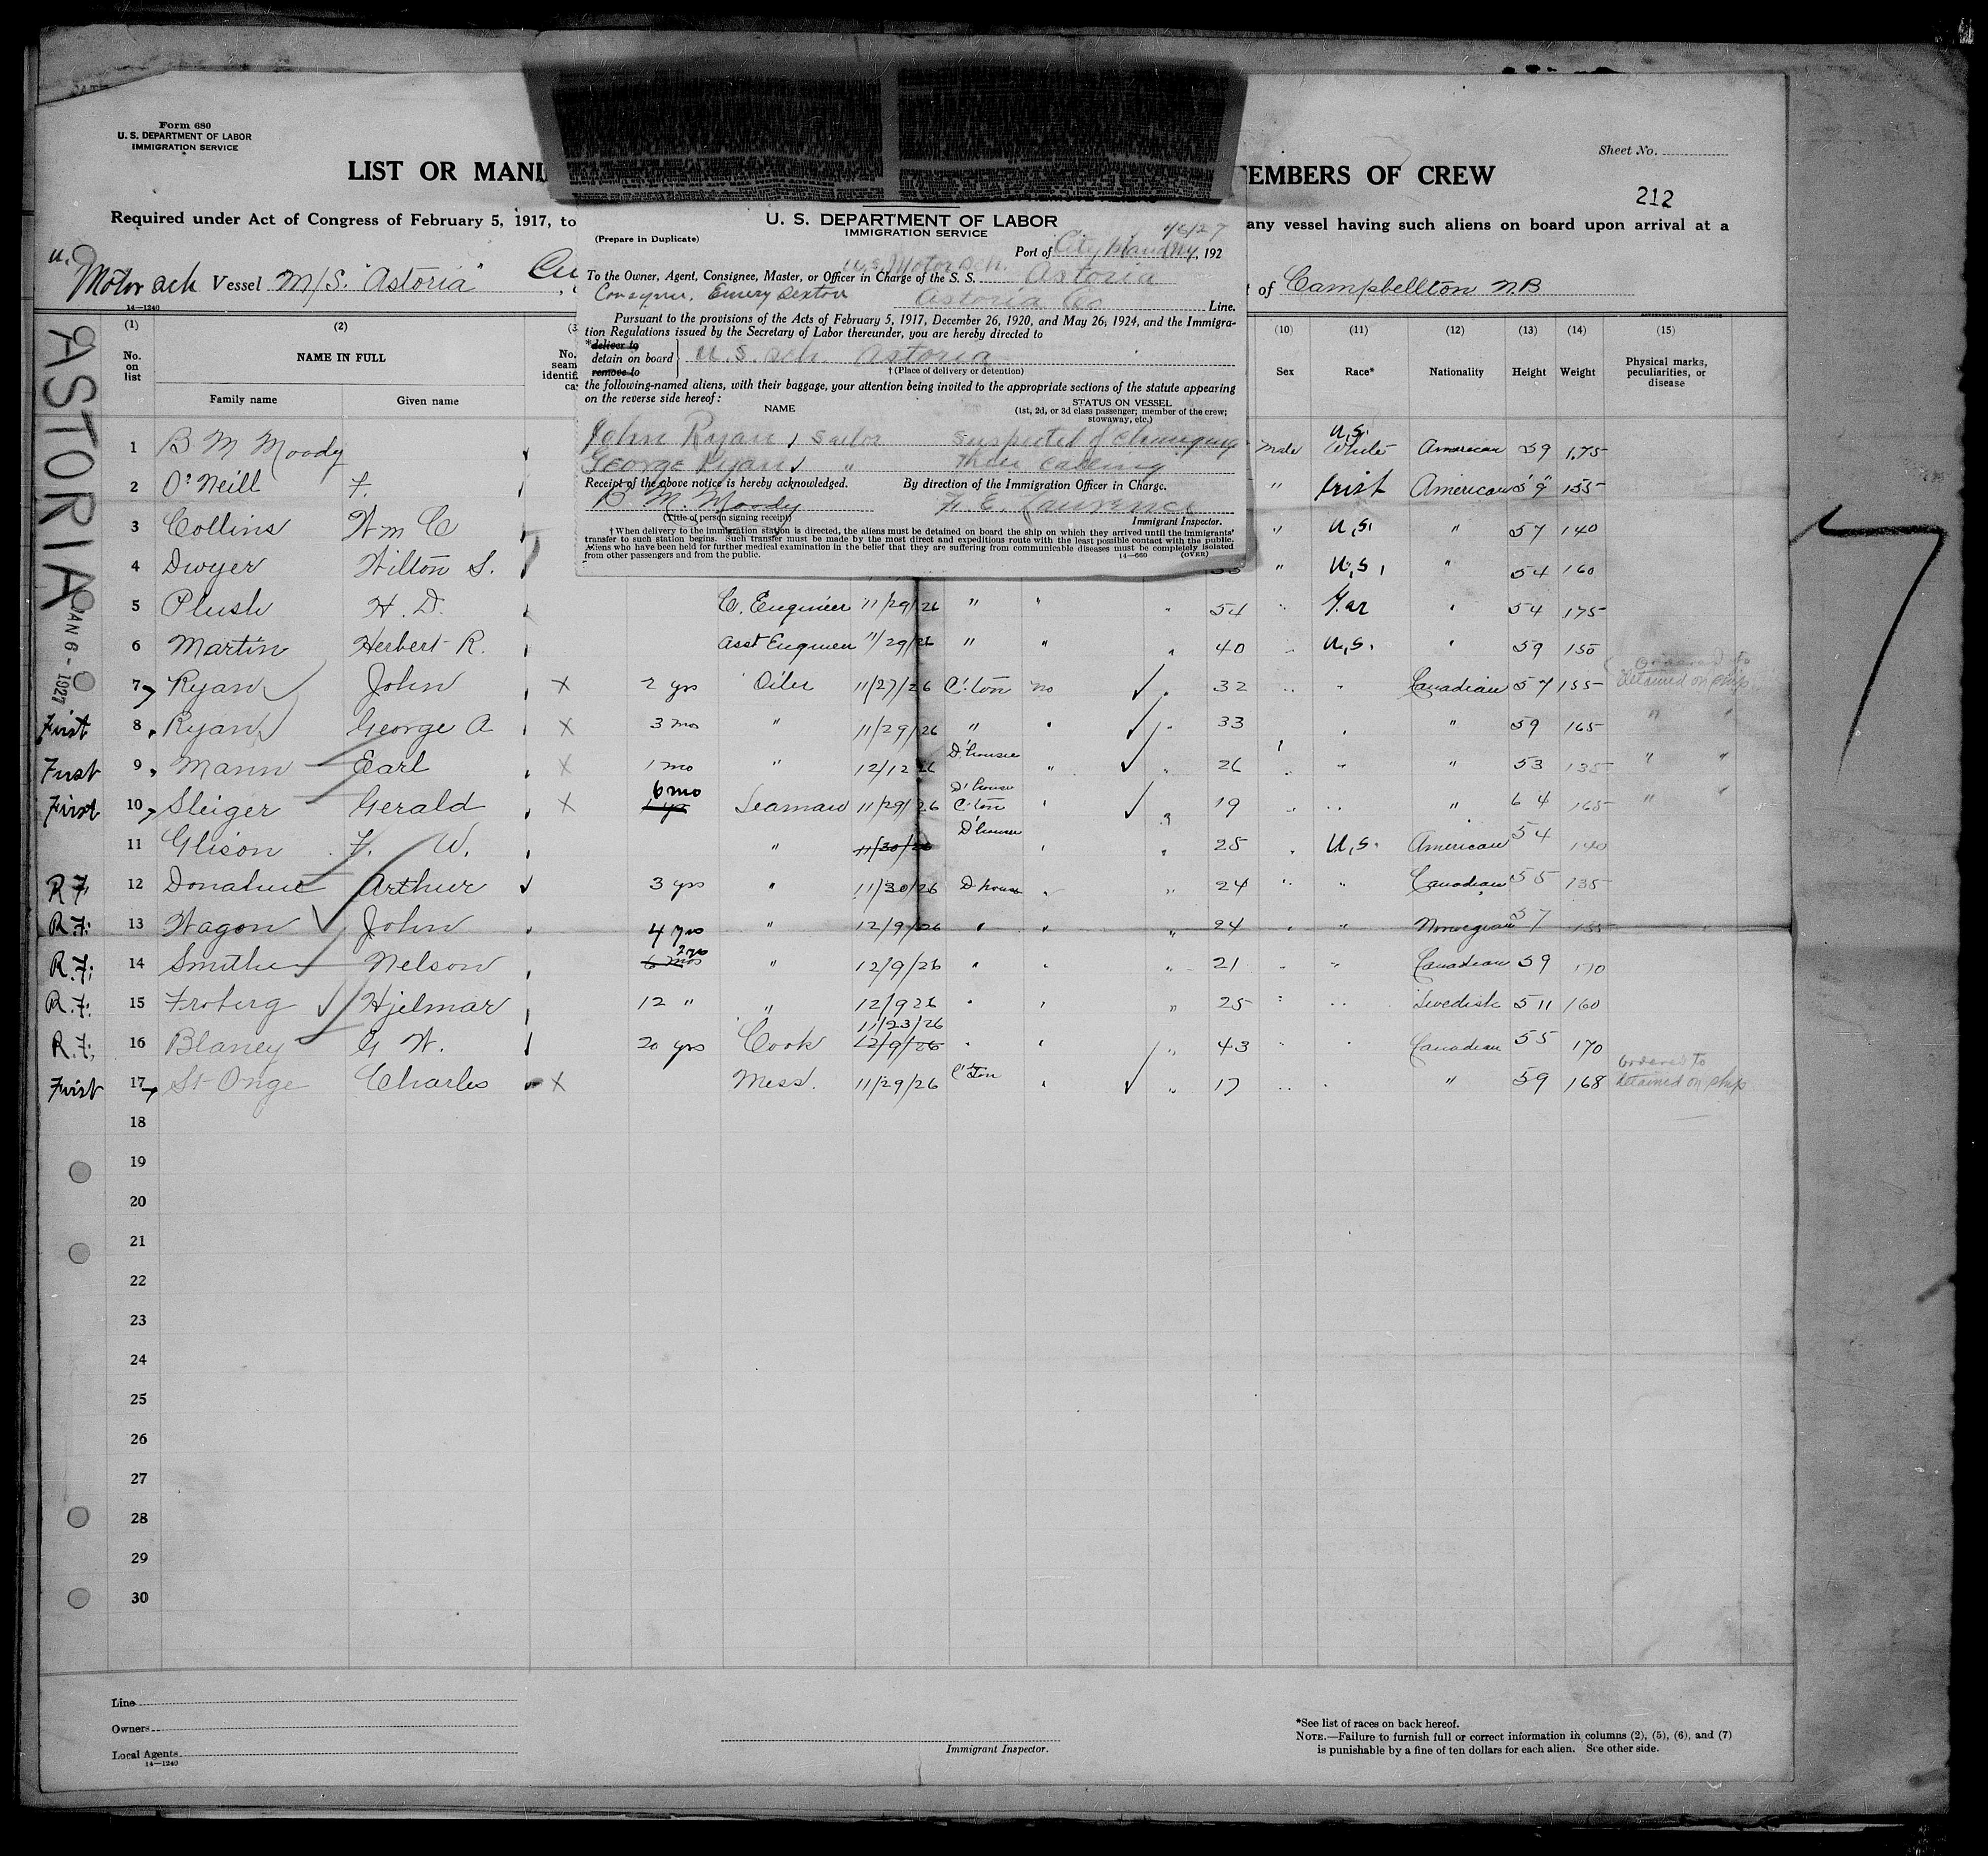 Form 680
U. S. DEPARTMENT OF LABOR
IMMIGRATION SERVICE
Sheet No.
LIST OR MANI
EMBERS OF CREW
212
Required under Act of Congress of February 5, 1917, to
any vessel having such aliens on board upon arrival at a
Motor sch Vessel M/S. "Astoria"
of Campbellton N.B
14—1240
U. S. DEPARTMENT OF LABOR
IMMIGRATION SERVICE
(Prepare in Duplicate)
Port of City Island N.Y., 192
To the Owner, Agent, Consignee, Master, or Officer in Charge of the S. S. U.S. Motor Sch. Astoria
Consignee, Emery Sexton Astoria Co Line.
Pursuant to the provisions of the Acts of February 5, 1917, December 26, 1920, and May 26, 1924, and the Immigra-
tion Regulations issued by the Secretary of Labor thereunder, you are hereby directed to
*deliver to
detain on board U. S. Sch. Astoria
remove to
†(Place of delivery or detention)
the following-named aliens, with their baggage, your attention being invited to the appropriate sections of the statute appearing
on the reverse side hereof:
NAME
STATUS ON VESSEL
(1st, 2d, or 3d class passenger; member of the crew;
stowaway, etc.)
John Ryan, Sailor suspected of changing
George Ryan " their calling
Receipt of the above notice is hereby acknowledged. By direction of the Immigration Officer in Charge.
B. M. Moody F. E. Lawrence
(Title of person signing receipt) Immigrant Inspector.
†When delivery to the immigration station is directed, the aliens must be detained on board the ship on which they arrived until the immigrants'
transfer to such station begins. Such transfer must be made by the most direct and expeditious route with the least possible contact with the public.
Aliens who have been held for further medical examination in the belief that they are suffering from communicable diseases must be completely isolated
from other passengers and from the public. 14—660 (OVER)
ASTORIA
JAN 6 - 1927
(1) (2) (3 (10) (11) (12) (13) (14) (15)
No. on list NAME IN FULL Family name Given name No. seam identifi ca Sex Race* Nationality Height Weight Physical marks, peculiarities, or disease
1 B M Moody Male U.S. White American 59 175
2 O'Neill F. " Irish American 5'9" 155
3 Collins Wm C " U.S. " 57 140
4 Dwyer Wilton S. " U.S. " 54 160
5 Plush H. D. C. Engineer 11/29/26 " " " 54 " Ger " 54 175
6 Martin Herbert R. Asst Engineer 11/29/26 " " " 40 " U.S. " 59 150
7 Ryan John X 2 yrs Oiler 11/27/26 C'ton no 32 " " Canadian 57 155 Ordered to detained on ship
First 8 Ryan George A X 3 mo " 11/29/26 " " 33 " 59 165 " "
First 9 Mann Earl X 1 mo " 12/12 26 D'housie " " 26 " " " 53 135 " "
First 10 Sleiger Gerald X 6 mo Seaman 11/29/26 D'house C'ton " 19 " " " 64 165 " "
11 Glison F. W. " 11/30/26 D'housie " " 25 " U.S. American 54 140
R.F. 12 Donahue Arthur 3 yrs " 11/30/26 D'house " " 24 " " Canadian 55 135
R.F. 13 Wagon John 4 yrs " 12/9/26 " " " 24 " " Norwegian 57 155
R.F. 14 Smithe Nelson 6 mos 2 yrs " 12/9/26 " " " 21 " " Canadian 59 170
R.F. 15 Froberg Hjelmar 12 " " 12/9 26 " " " 25 " " Swedish 5 11 160
R.F. 16 Blaney G W. 20 yrs Cook 11/23/26 12/9/26 " " " 43 " " Canadian 55 170
First 17 St Onge Charles X Mess. 11/29/26 C'ton " " 17 " " " 59 168 Ordered to detained on ship
18
19
20
21
22
23
24
25
26
27
28
29
30
Line
Owners
Local Agents
14—1240
Immigrant Inspector.
*See list of races on back hereof.
NOTE.—Failure to furnish full or correct information in columns (2), (5), (6), and (7)
is punishable by a fine of ten dollars for each alien. See other side.